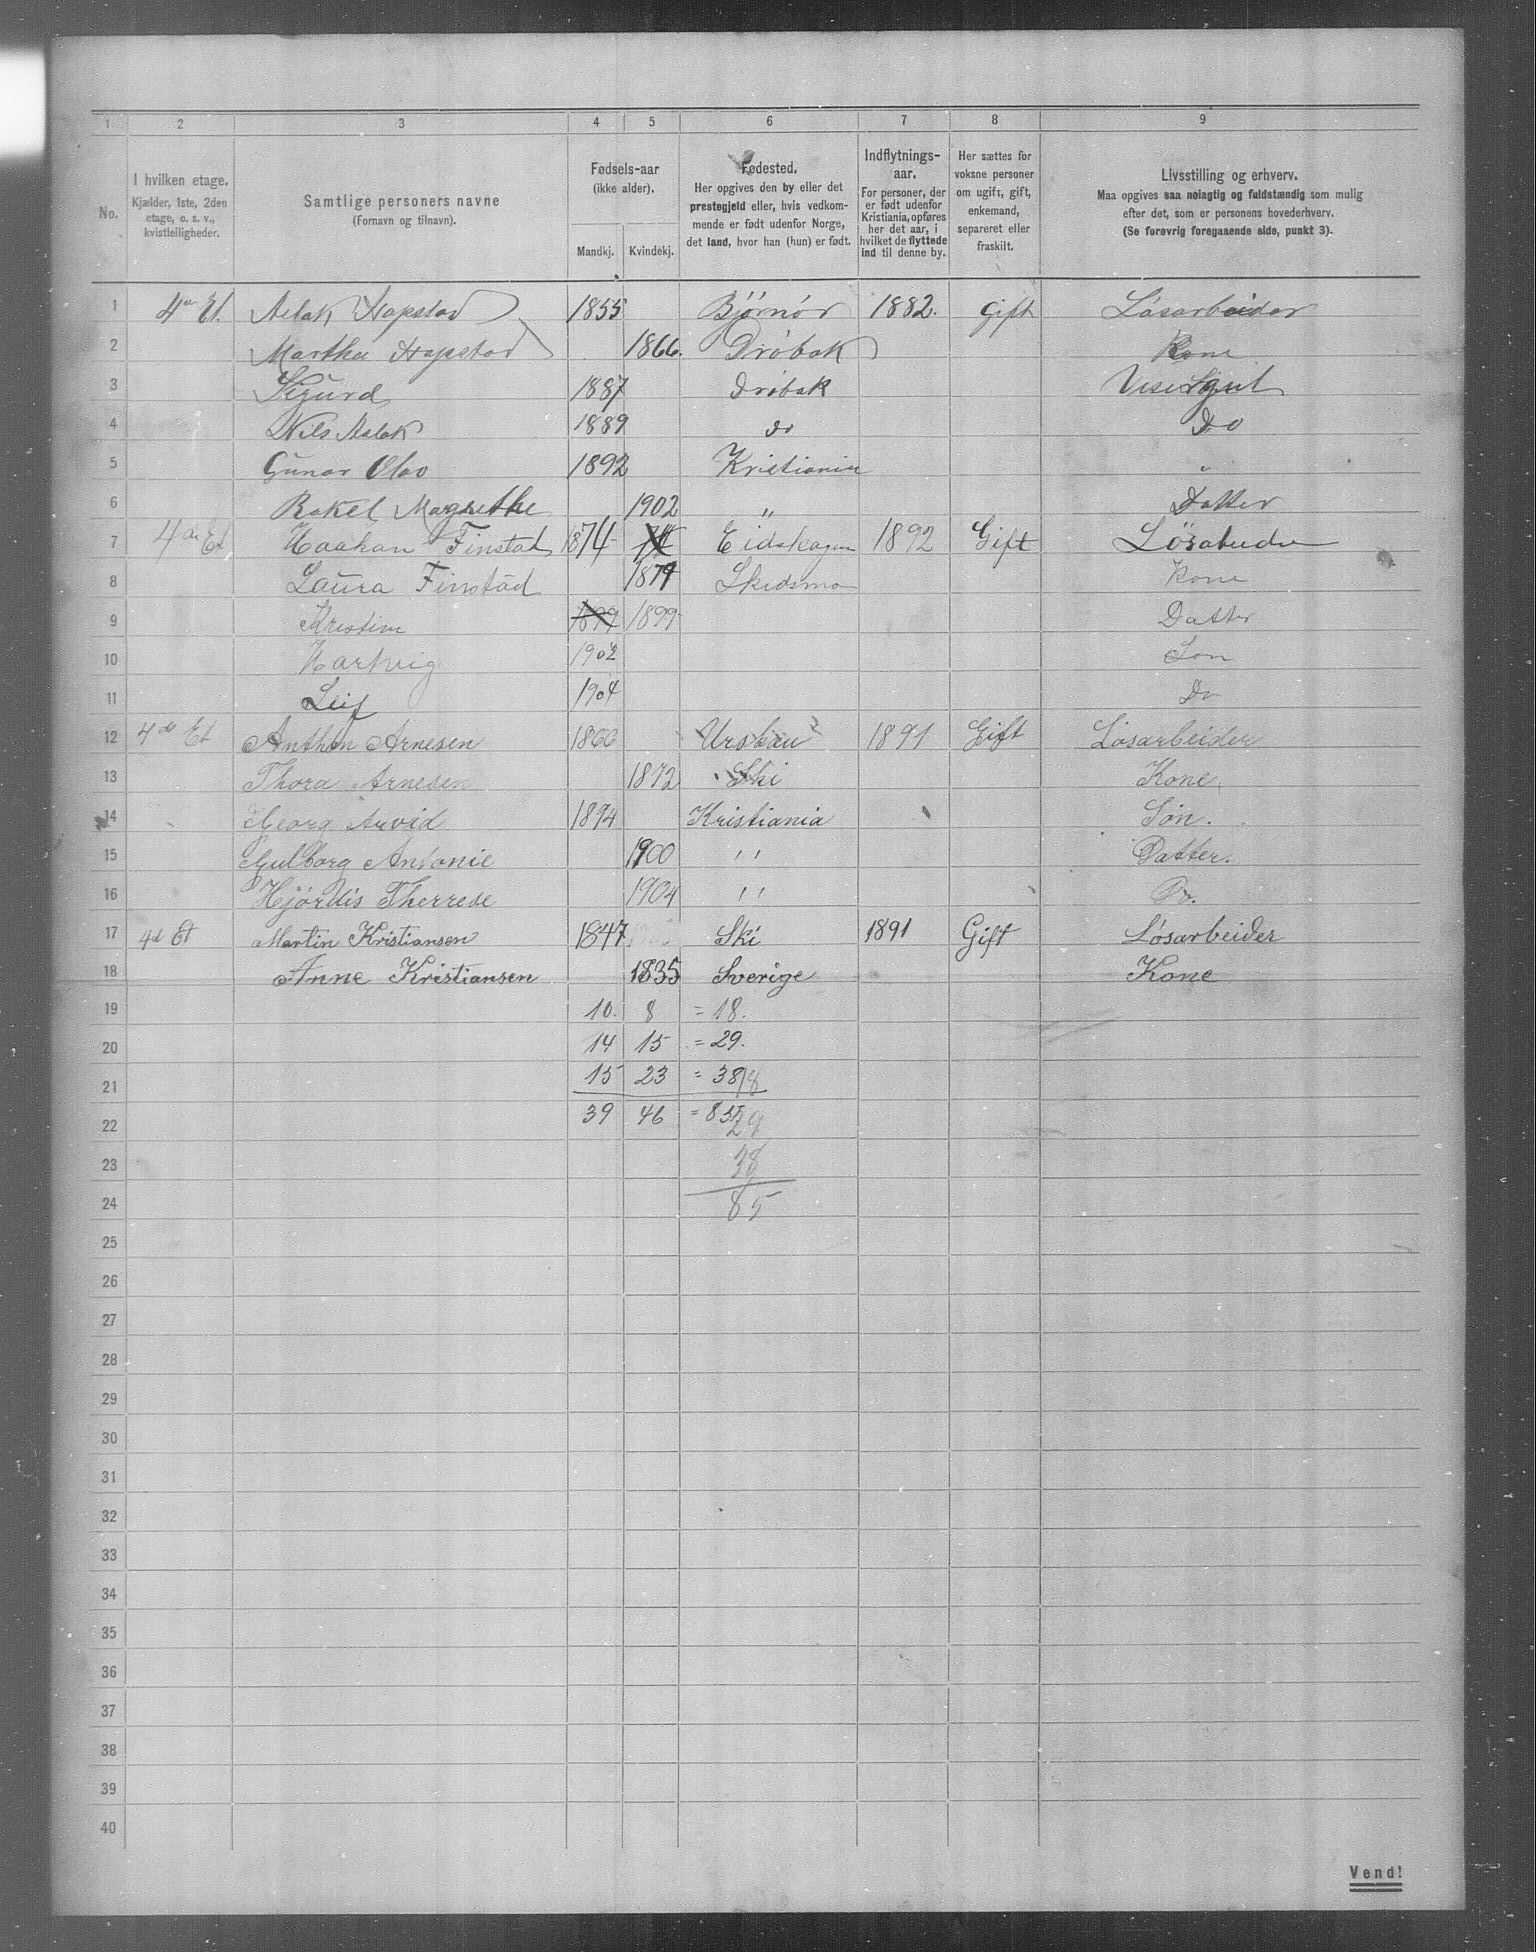 1 2 3 4 5 6 7 8 9
No. I hvilken etage. Kjælder, 1ste, 2den etage, o. s. v., kvistleiligheder. Samtlige personers navne (Fornavn og tilnavn). Fødsels-aar (ikke alder). Mandkj. Kvindekj. Fødested. Her opgives den by eller det prestegjeld eller, hvis vedkommende er født udenfor Norge, det land, hvor han (hun) er født. Indflytnings-aar. For personer, der er født udenfor Kristiania, opføres her det aar, i hvilket de flyttede ind til denne by. Her sættes for voksne personer om ugift, gift, enkemand, separeret eller fraskilt. Livsstilling og erhverv. Maa opgives saa nøiagtig og fuldstændig som mulig efter det, som er personens hovederhverv. (Se forøvrig foregaaende side, punkt 3).
1 4de Et. Aslak Hapstad 1855 Bjørnør 1882. Gift Løsarbeider
2 Martha Hapstad 1866. Drøbak Kone
3 Sigurd 1887 Drøbak
4 Nils Aslak 1889 do Do
5 Gunar Olav 1892 Kristiania "
6 Rakel Magrethe 1902 " Datter
7 4de Et Haakan Finstad 1874 Eidskogen 1892 Gift
8 Laura Finstad 1874 Skedsmo Kone
9 Kristine 1899 1899 Datter
10 Hartvig 1902 Son
11 Leif 1904 Do
12 4de Et Anthon Arnesen 1866 Urskau 1891 Gift Løsarbeider
13 Thora Arnesen 1872 Ski Kone
14 Georg Arvid 1894 Kristiania Søn.
15 Gulborg Antonie 1900 " Datter.
16 Hjørdis Therrese 1904 " Do.
17 4d Et Martin Kristiansen 1847 Ski 1891 Gift Løsarbeider
18 Anne Kristiansen 1835 Sverige Kone
19 10. 8 = 18.
20 14 15 = 29.
21 15 23 = 38 18
22 39 46 = 85 29
23 38
24 85
25
26
27
28
29
30
31
32
33
34
35
36
37
38
39
40
Vend!